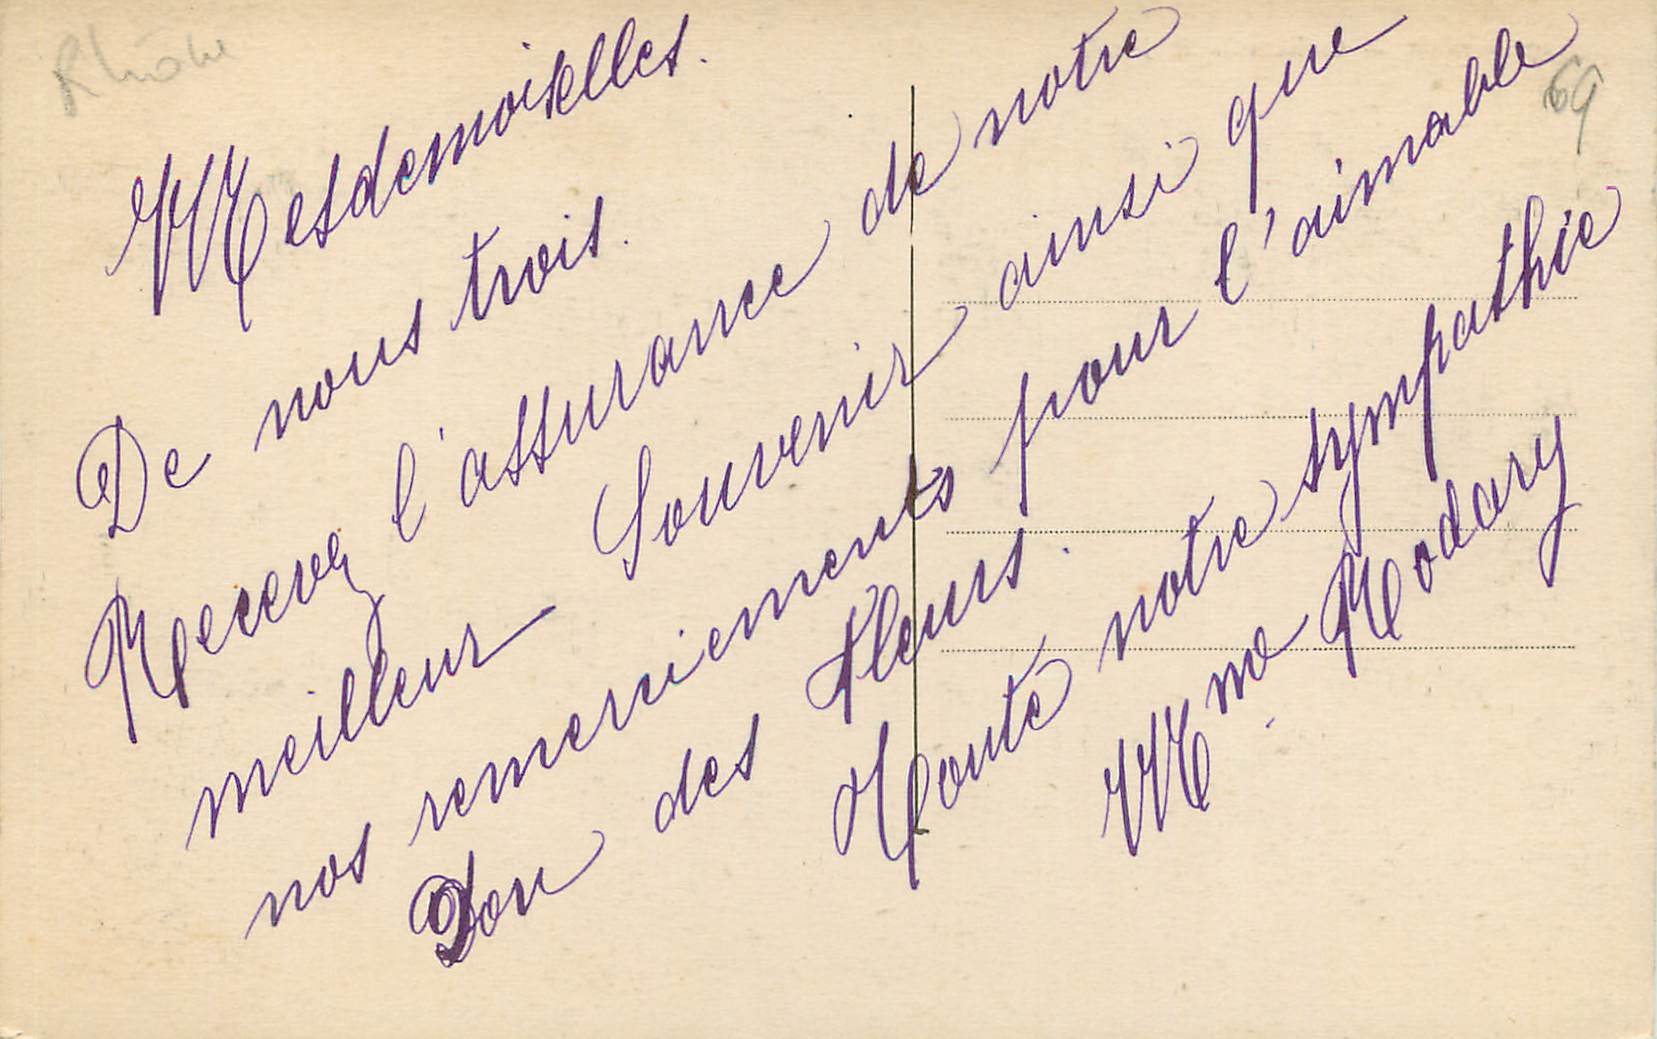 Rhône
69
Mesdemoiselles.
De nous trois.
Recevez l'assurance de notre
meilleur Souvenir ainsi que
nos remerciements pour l'aimable
Don des Fleurs.
Toute notre sympathie
Mme Rodary